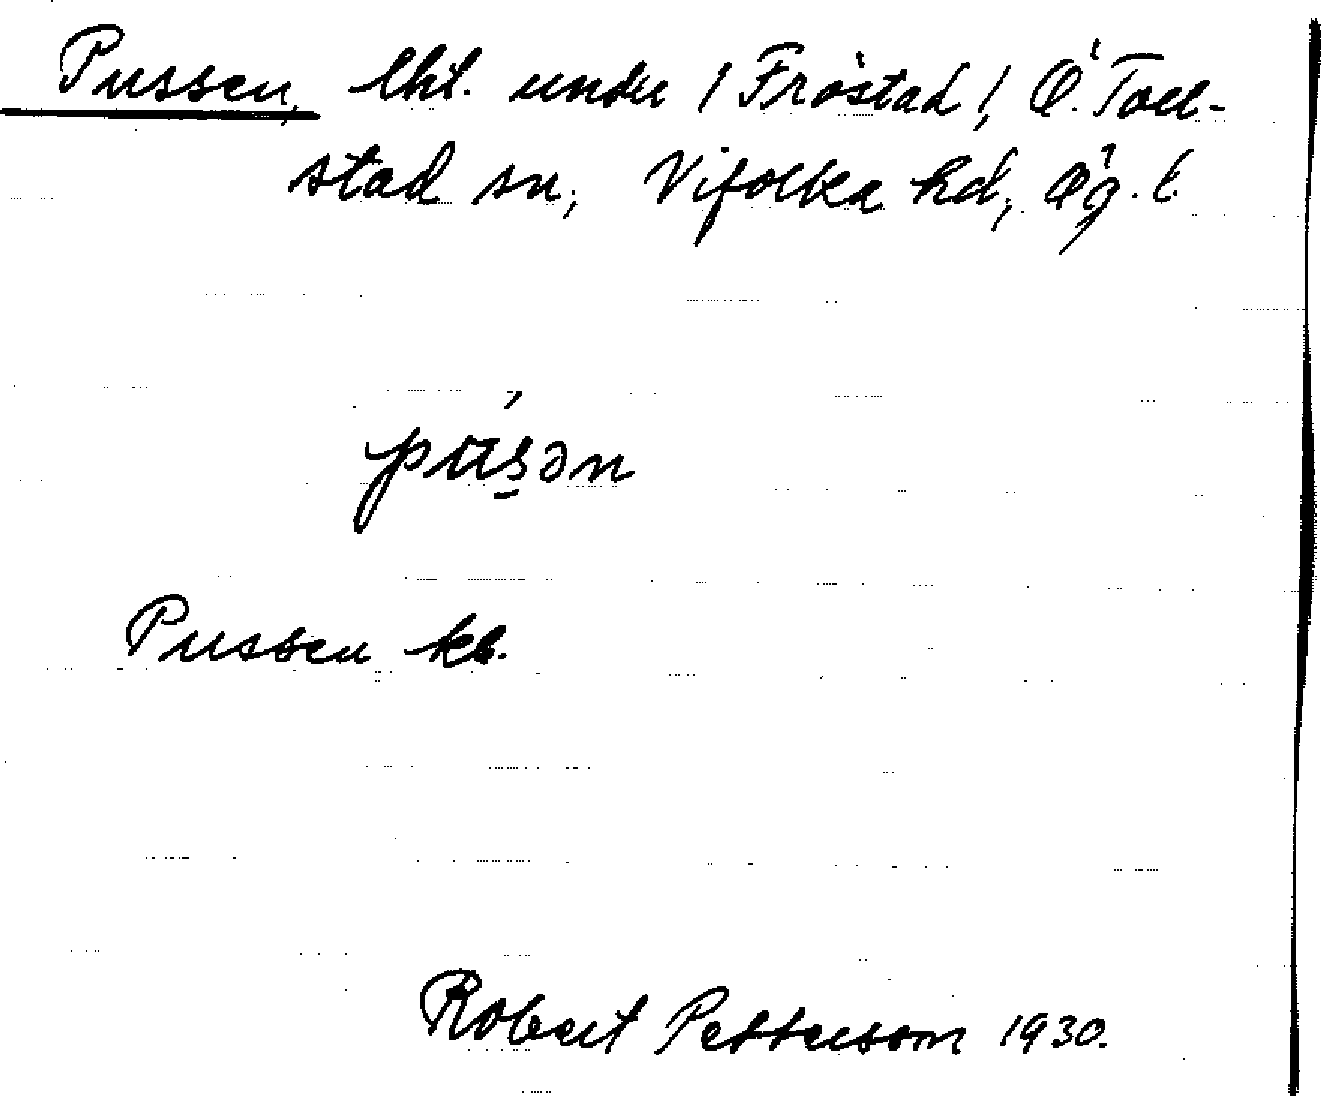 Pussen, lht. under /Fröstad/, Ö. Toll-
stad sn, Vifolka hd, Ög. l.
pusən
Pussen kb.
Robert Petterson 1930.